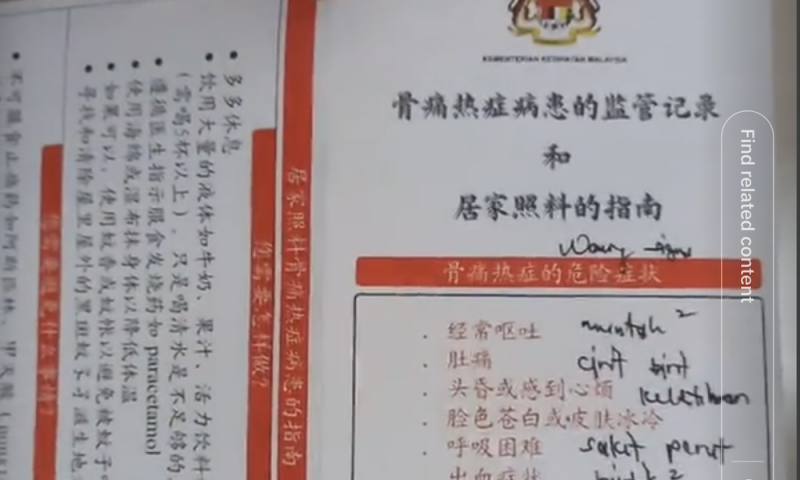 KEMENTERIAN KESIHATAN MALAYSIA
骨痛热症病患的监管记录
和
居家照料的指南
骨痛热症的危险症状
· 经常呕吐 muntah 2
· 肚痛
· 头昏或感到心烦 keletihan
· 脸色苍白或皮肤冰冷
· 呼吸困难 sakit perut
· 出血症状
居家照料骨痛热症病患的指南
您需要怎样做?
• 多多休息
• 饮用大量的液体如牛奶、果汁、活力饮料
(需喝5杯以上)，只是喝清水是不足够的
• 遵循医生指示服食发烧药如 paracetamol
• 使用海绵或湿布抹身体以降低体温
• 如果可以，使用蚊香或蚊帐以避免被蚊子
• 寻找和清除屋里屋外的黑斑蚊孑孓滋生地
您需要避免什么事情?
• 不可服食止痛药如阿斯匹林、
Find related content